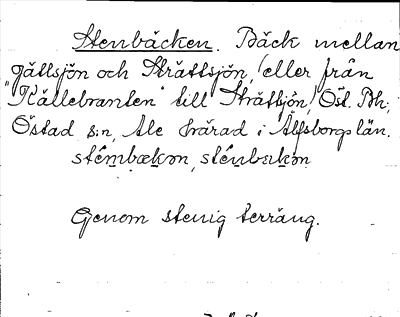 Stenbäcken. Bäck mellan
Gällsjön och Strättsjön, (eller från
"Källebranten" till Strättsjön) Öst. Bh;
Östad s:n, Ale härad i Älfsborgs län.
sténbækən, sténbukən
Genom stenig terräng.